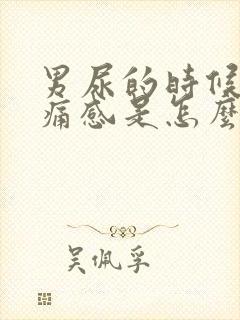 男尿的時候
痛感是怎麼
吴佩孚